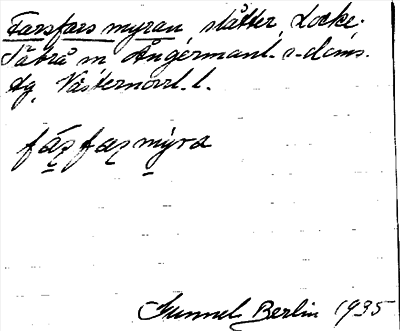 Farsfarsmyran slåtter, Locke.
Säbrå sn Ångermanl. s. doms.
dg. Västernorrl. l.
fa̤ʂfaʂmy̤ra
Gunnel Berlin 1935